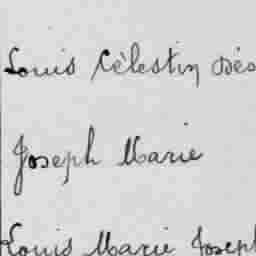 Louis Célestin Dés
Joseph Marie
Louis Marie Joseph